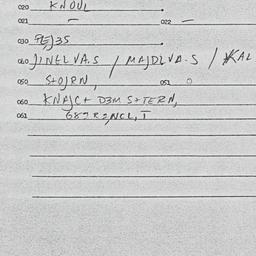 020 KNOUL
021 – 022 –
030 PEJ35
040 JINELVA.S / MAJDLVA.S / KAL
050 STOJRN, 051 0
060 KNAJC+ D3M S+TERN,
061 68